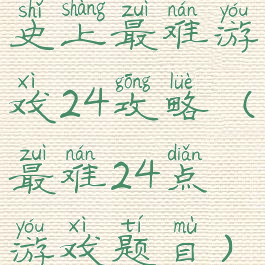 shǐ shàng zuì nán yóu
史上最难游
xì gōng lüè
戏24攻略（
zuì nán diǎn
最难24点
yóu xì tí mù
游戏题目）